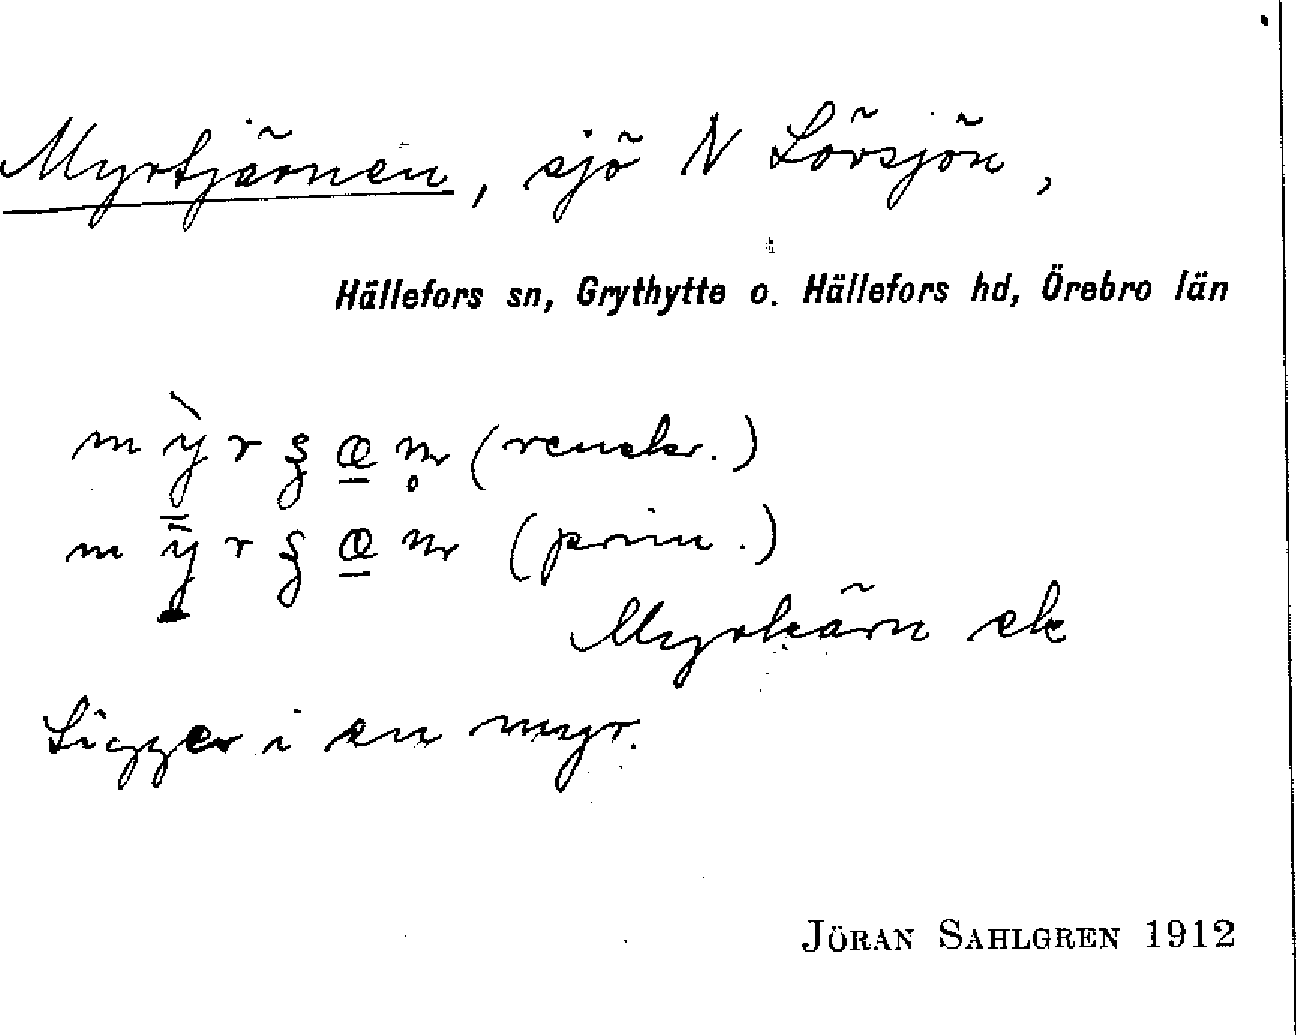 Myrtjärnen, sjö N Lövsjön,
Hällefors sn, Grythytte o. Hällefors hd, Örebro län
(renskr.)
(prim.)
Myrkärn ek
Ligger i en myr.
JÖRAN SAHLGREN 1912